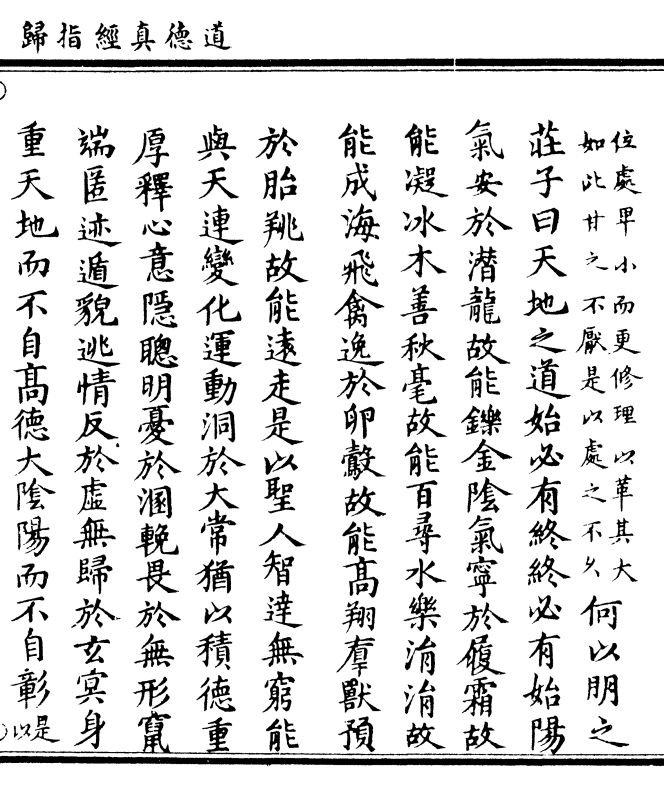 道德真經指歸
位處卑小而更修理以革其大
如此甘之不厭是以處之不久何以明之
莊子曰天地之道始必有終終必有始陽
氣安於潛龍故能鑠金陰氣寧於履霜故
能凝冰木善秋毫故能百尋水樂涓涓故
能成海飛禽逸於卵鷇故能高翔羣獸預
於胎㹸故能遠走是以聖人智達無窮能
與天連變化運動洞於大常猶以積德重
厚釋心意隱聰明憂於溷輓畏於無形竄
端匿迹遁貌逃情反於虛無歸於玄冥身
重天地而不自高德大陰陽而不自彰是以